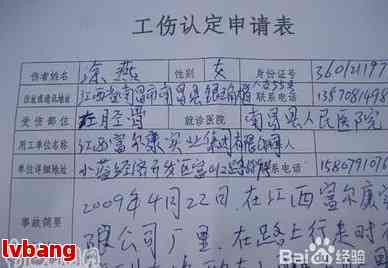 工伤认定申请表
伤者姓名 涂燕 性别 女 身份证号 360121197
住址或通讯地址 江西省南昌市南昌县 联系电话 1357081498
受伤部位 就诊医院 南昌县人民医院
用工单位名称 江西富尔康实业集团有限公司
单位详细地址 小蓝经济开发区富山 联系电话 1580791016
事故简要 2009年4月22日,在江西富尔康实
限公司厂里,在路上行走时
lvbang
Bai 百度经验